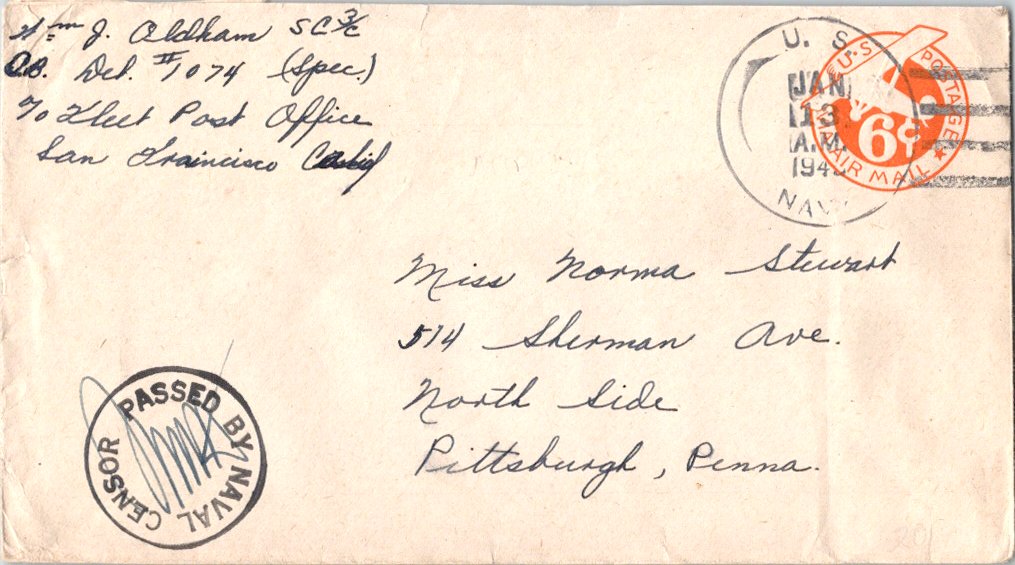 Wm J. Oldham SC 3/c
C.B. Det. #1074 (Spec.)
c/o Fleet Post Office
San Francisco Calif
U. S.
JAN
13
A.M.
194
NAVY
U.S. POSTAGE
6¢
AIR MAIL
Miss Norma Stewart
514 Sherman Ave.
North Side
Pittsburgh, Penna.
PASSED BY NAVAL CENSOR
20